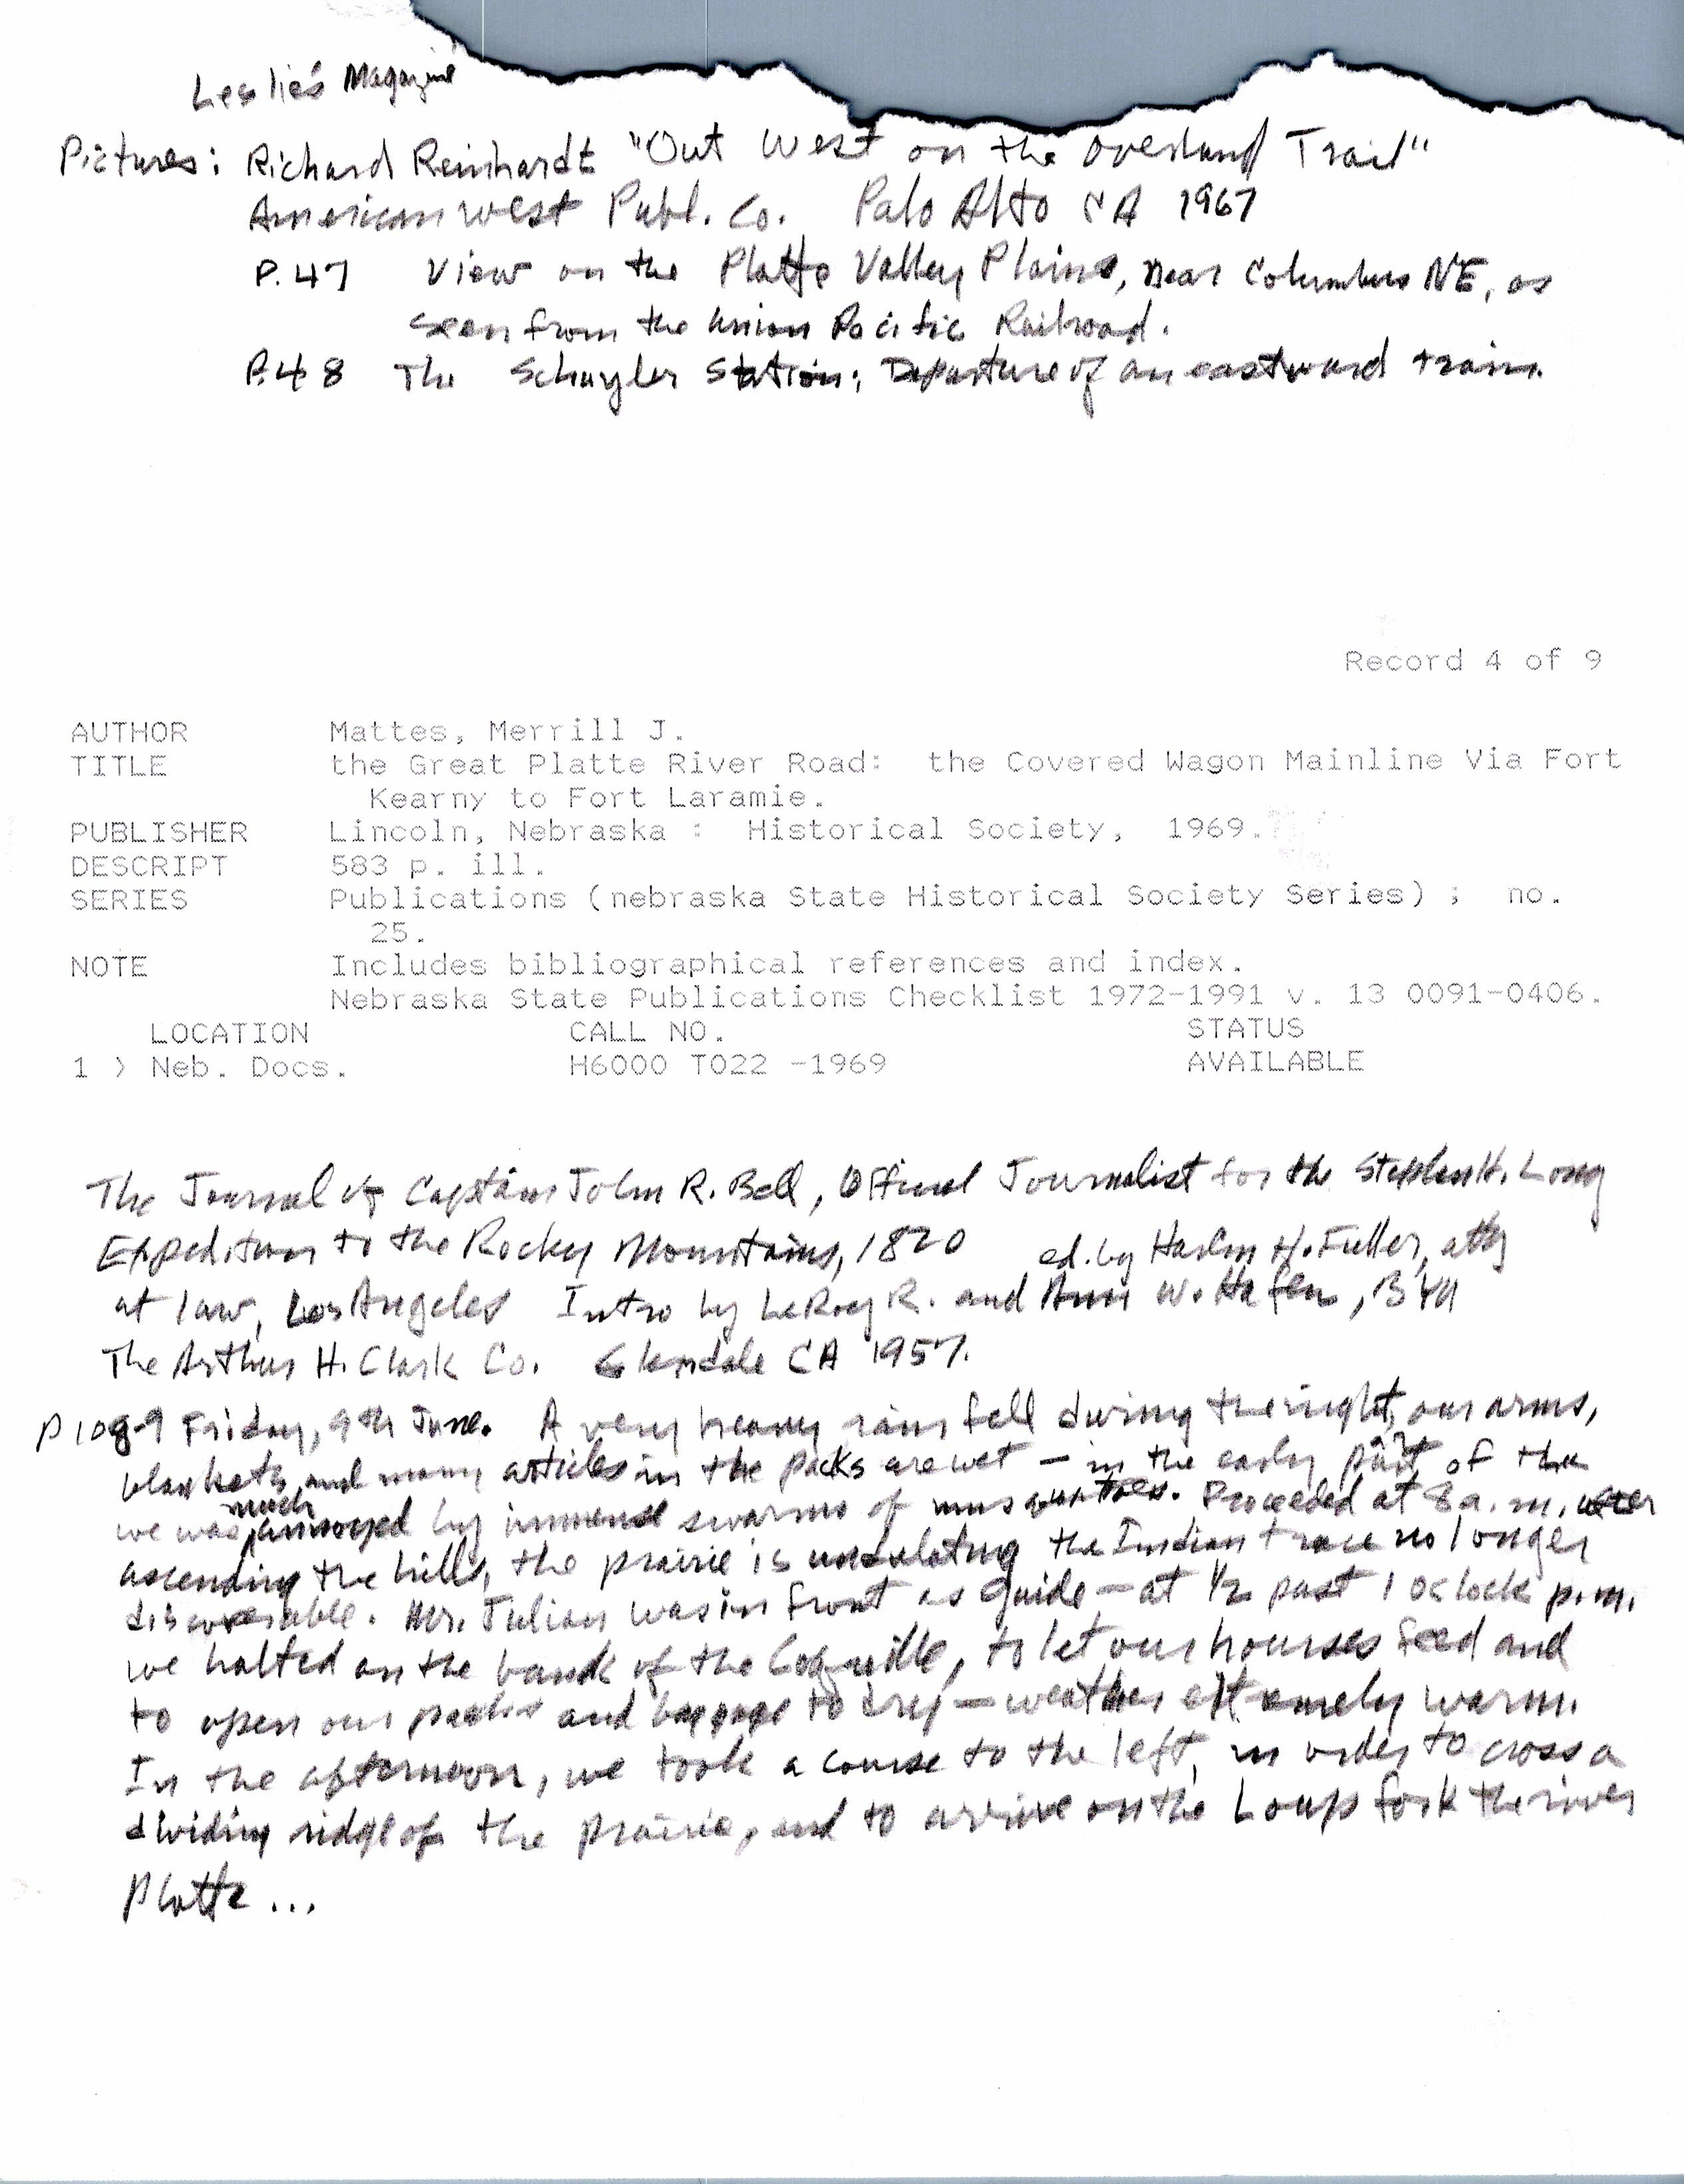 Leslie's Magazine
Pictures: Richard Reinhardt "Out West on the Overland Trail"
American West Publ. Co. Palo Alto CA 1967
P.47 View on the Platte Valley Plains, near Columbus NE, as
seen from the Union Pacific Railroad.
P.48 The Schuyler Station; Departure of an eastward train.
Record 4 of 9
AUTHOR Mattes, Merrill J.
TITLE the Great Platte River Road: the Covered Wagon Mainline Via Fort
Kearny to Fort Laramie.
PUBLISHER Lincoln, Nebraska : Historical Society, 1969.
DESCRIPT 583 p. ill.
SERIES Publications (nebraska State Historical Society Series) ; no.
25.
NOTE Includes bibliographical references and index.
Nebraska State Publications Checklist 1972-1991 v. 13 0091-0406.
LOCATION CALL NO. STATUS
1 > Neb. Docs. H6000 T022 -1969 AVAILABLE
The Journal of Captain John R. Bell, Official Journalist for the Stephen H. Long
Expedition to the Rocky Mountains, 1820 ed. by Harlin H. Fuller, atty
at law, Los Angeles Intro by LeRoy R. and Ann W. Hafen, BYU
The Arthur H. Clark Co. Glendale CA 1957.
P 108-9 Friday, 9th June. A very heavy rain fell during the night, our arms,
blankets and many articles in the packs are wet — in the early part of the
we was much annoyed by immense swarms of Proceeded at 8 a.m. after
ascending the hills, the prairie is undulating the Indian trace no longer
discoverable. Mr. Julian was in front as guide — at 1/2 past 1 oclock p.m.
we halted on the bank of the Coquille, to let our hourses feed and
to open our packs and baggage to dry — weather extremely warm.
In the afternoon, we took a course to the left, in order to cross a
dividing ridge of the prairie, and to arrive on the Loup fork the river
Platte ...